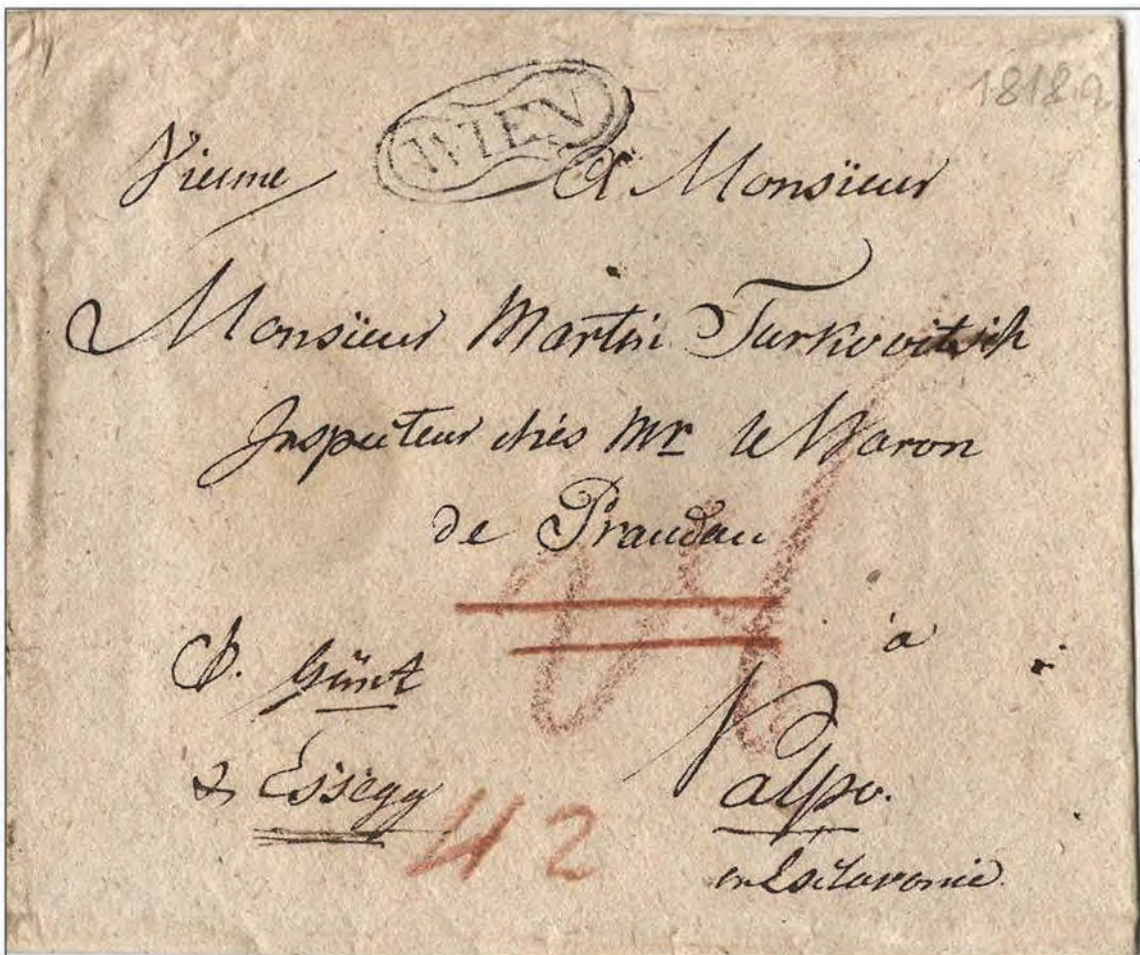 1818.
WIEN
Vienne A Monsieur
Monsieur Martin Turkovitsch
Inspecteur chés Mr le Baron
de Prandau
à
P. Günst
& Essegg Valpo.
42 en Esclavonie